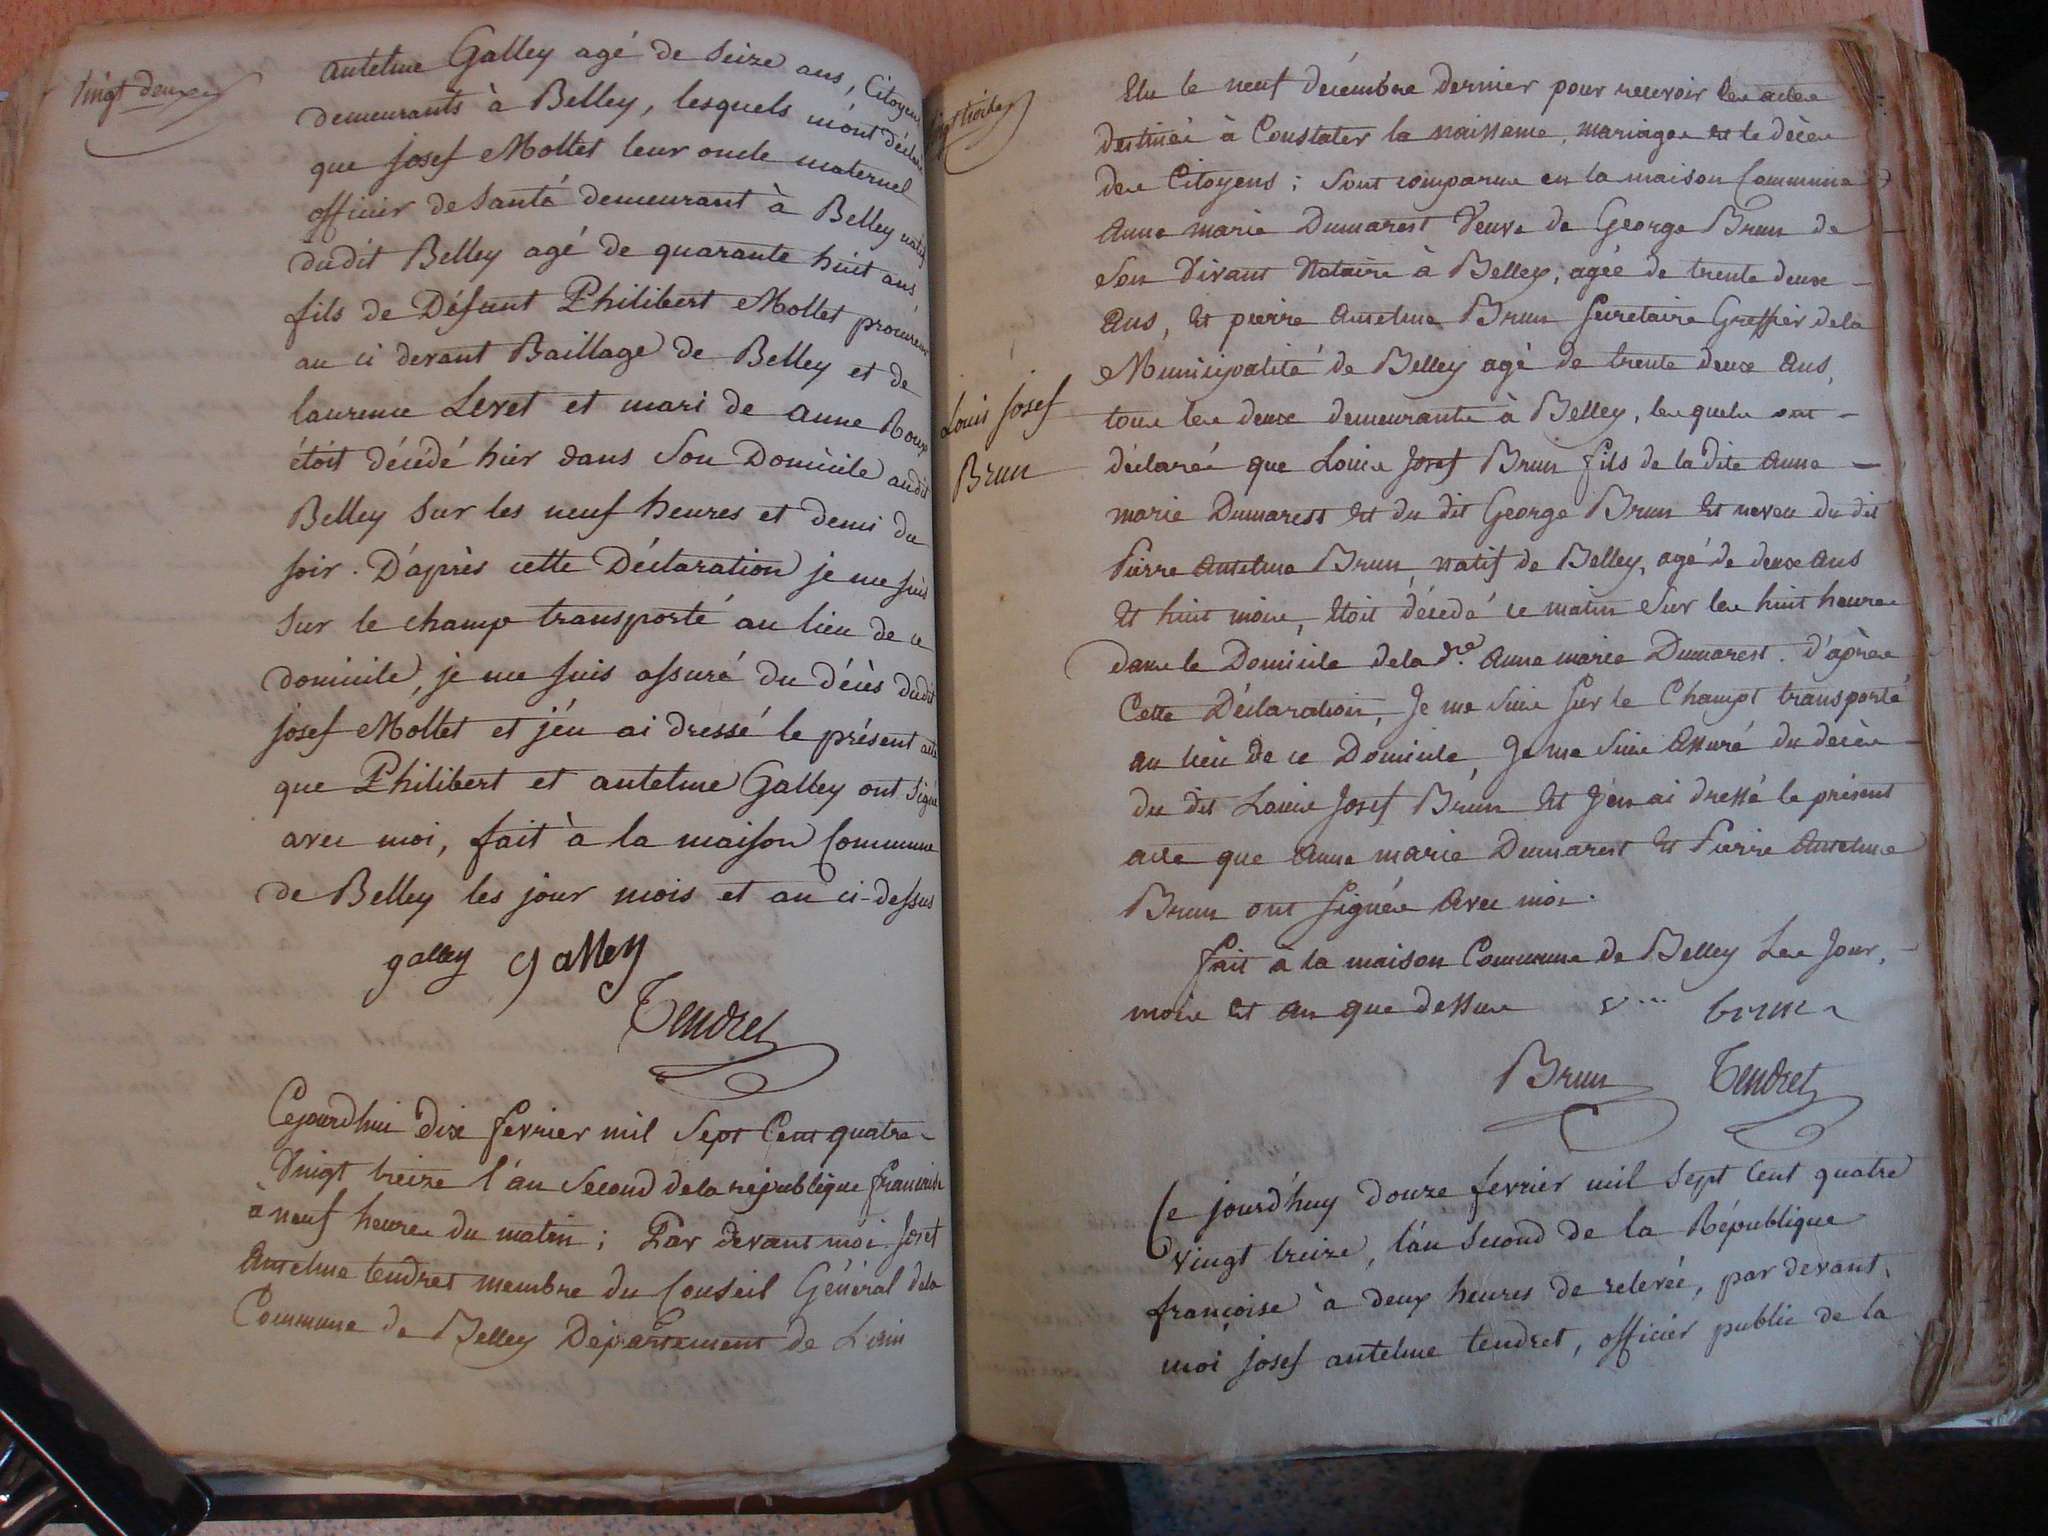 Vingt deuxe
antelme Galley agé de Seize ans, Citoyens
demeurants à Belley, lesquels m'ont déclaré
que Josef Mollet leur oncle maternel
officier de Santé demeurant à Belley natif
dudit Belley agé de quarante huit ans
fils de Défunt Philibert Mollet procureur
au ci devant Baillage de Belley et de
laurence Levet et mari de anne Roux
étoit décédé hier dans Son Domicile audit
Belley Sur les neuf heures et demi du
soir. D'après cette Déclaration je me suis
Sur le champ transporté au lieu de ce
domicile, je me suis assuré du décès dudit
josef Mollet et j'en ai dressé le présent acte
que Philibert et antelme Galley ont Signé
avec moi, fait à la maison Commune
de Belley les jour mois et an ci-dessus
galley galley
Tendret
Cejourdhui dix fevrier mil Sept Cent quatre
Vingt treize l'an Second de la république francaise
à neuf heures du matin ; Par devant moi Josef
Antelme tendret membre du Conseil Général dela
Commune de Belley Département de L'ain
Vingt troisieme
Elu le neuf décembre dernier pour recevoir les actes
destinés à Constater la naissance, mariages et le décès
des Citoyens ; sont comparus en la maison Commune
Anne marie Dumarest Veuve de George Brun de
Son Vivant Notaire à Belley, agée de trente deux
Ans, et pierre Antelme Brun Secretaire Greffier dela
Municipalité de Belley agé de trente deux Ans,
tous les deux demeurants à Belley, lesquels ont
Louis Josef
Brun
déclarés que Louis Josef Brun fils de la dite Anne
marie Dumarest et du dit George Brun et neveu du dit
Pierre Antelme Brun, natif de Belley, agé de deux Ans
et huit mois, etoit décédé ce matin Sur les huit heures
dans le Domicile dela dte Anne marie Dumarest. d'après
Cette Déclaration, Je me suis Sur le Champt transporté
au lieu de ce Domicile, Je me suis Assuré du décès
du dit Louis Josef Brun et J'en ai dressé le présent
acte que Anne marie Dumarest et Pierre Antelme
Brun ont signés Avec moi.
fait à la maison Commune de Belley Les Jour,
mois et an que dessus brun
Brun Tendret
Ce jourd'huy douze fevrier mil Sept Cent quatre
vingt treize, l'an Second de la République
françoise à deux heures de relevée, par devant
moi josef antelme tendret, officier public de la